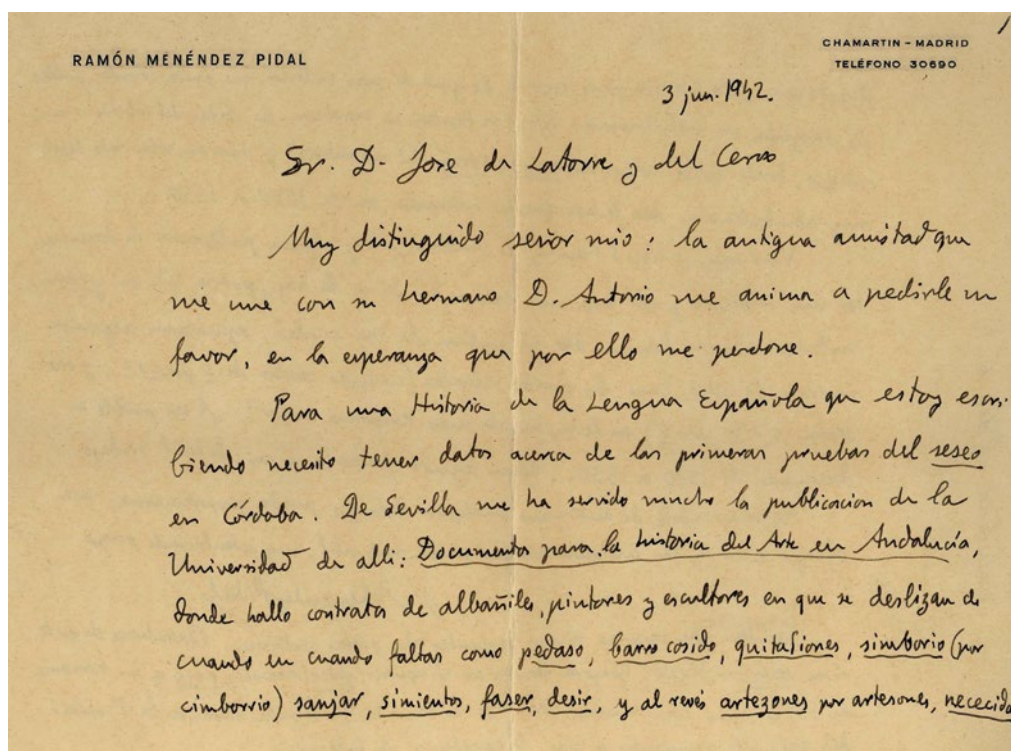 1
RAMÓN MENÉNDEZ PIDAL
CHAMARTIN - MADRID
TELÉFONO 30690
3 jun. 1942.
Sr. D. Jose de Latorre y del Cerro
Muy distinguido señor mio: la antigua amistad que
me une con su hermano D. Antonio me anima a pedirle un
favor, en la esperanza que por ello me perdone.
Para una Historia de la Lengua Española que estoy escri-
biendo necesito tener datos acerca de las primeras pruebas del seseo
en Córdoba. De Sevilla me ha servido mucho la publicacion de la
Universidad de alli: Documentos para la historia del Arte en Andalucía,
donde hallo contratos de albañiles, pintores y escultores en que se deslizan de
cuando en cuando faltas como pedaso, barro cosido, quitasiones, simborio (por
cimborrio) sanjar, simientos, faser, desir, y al revés artezones por artesones, nececida